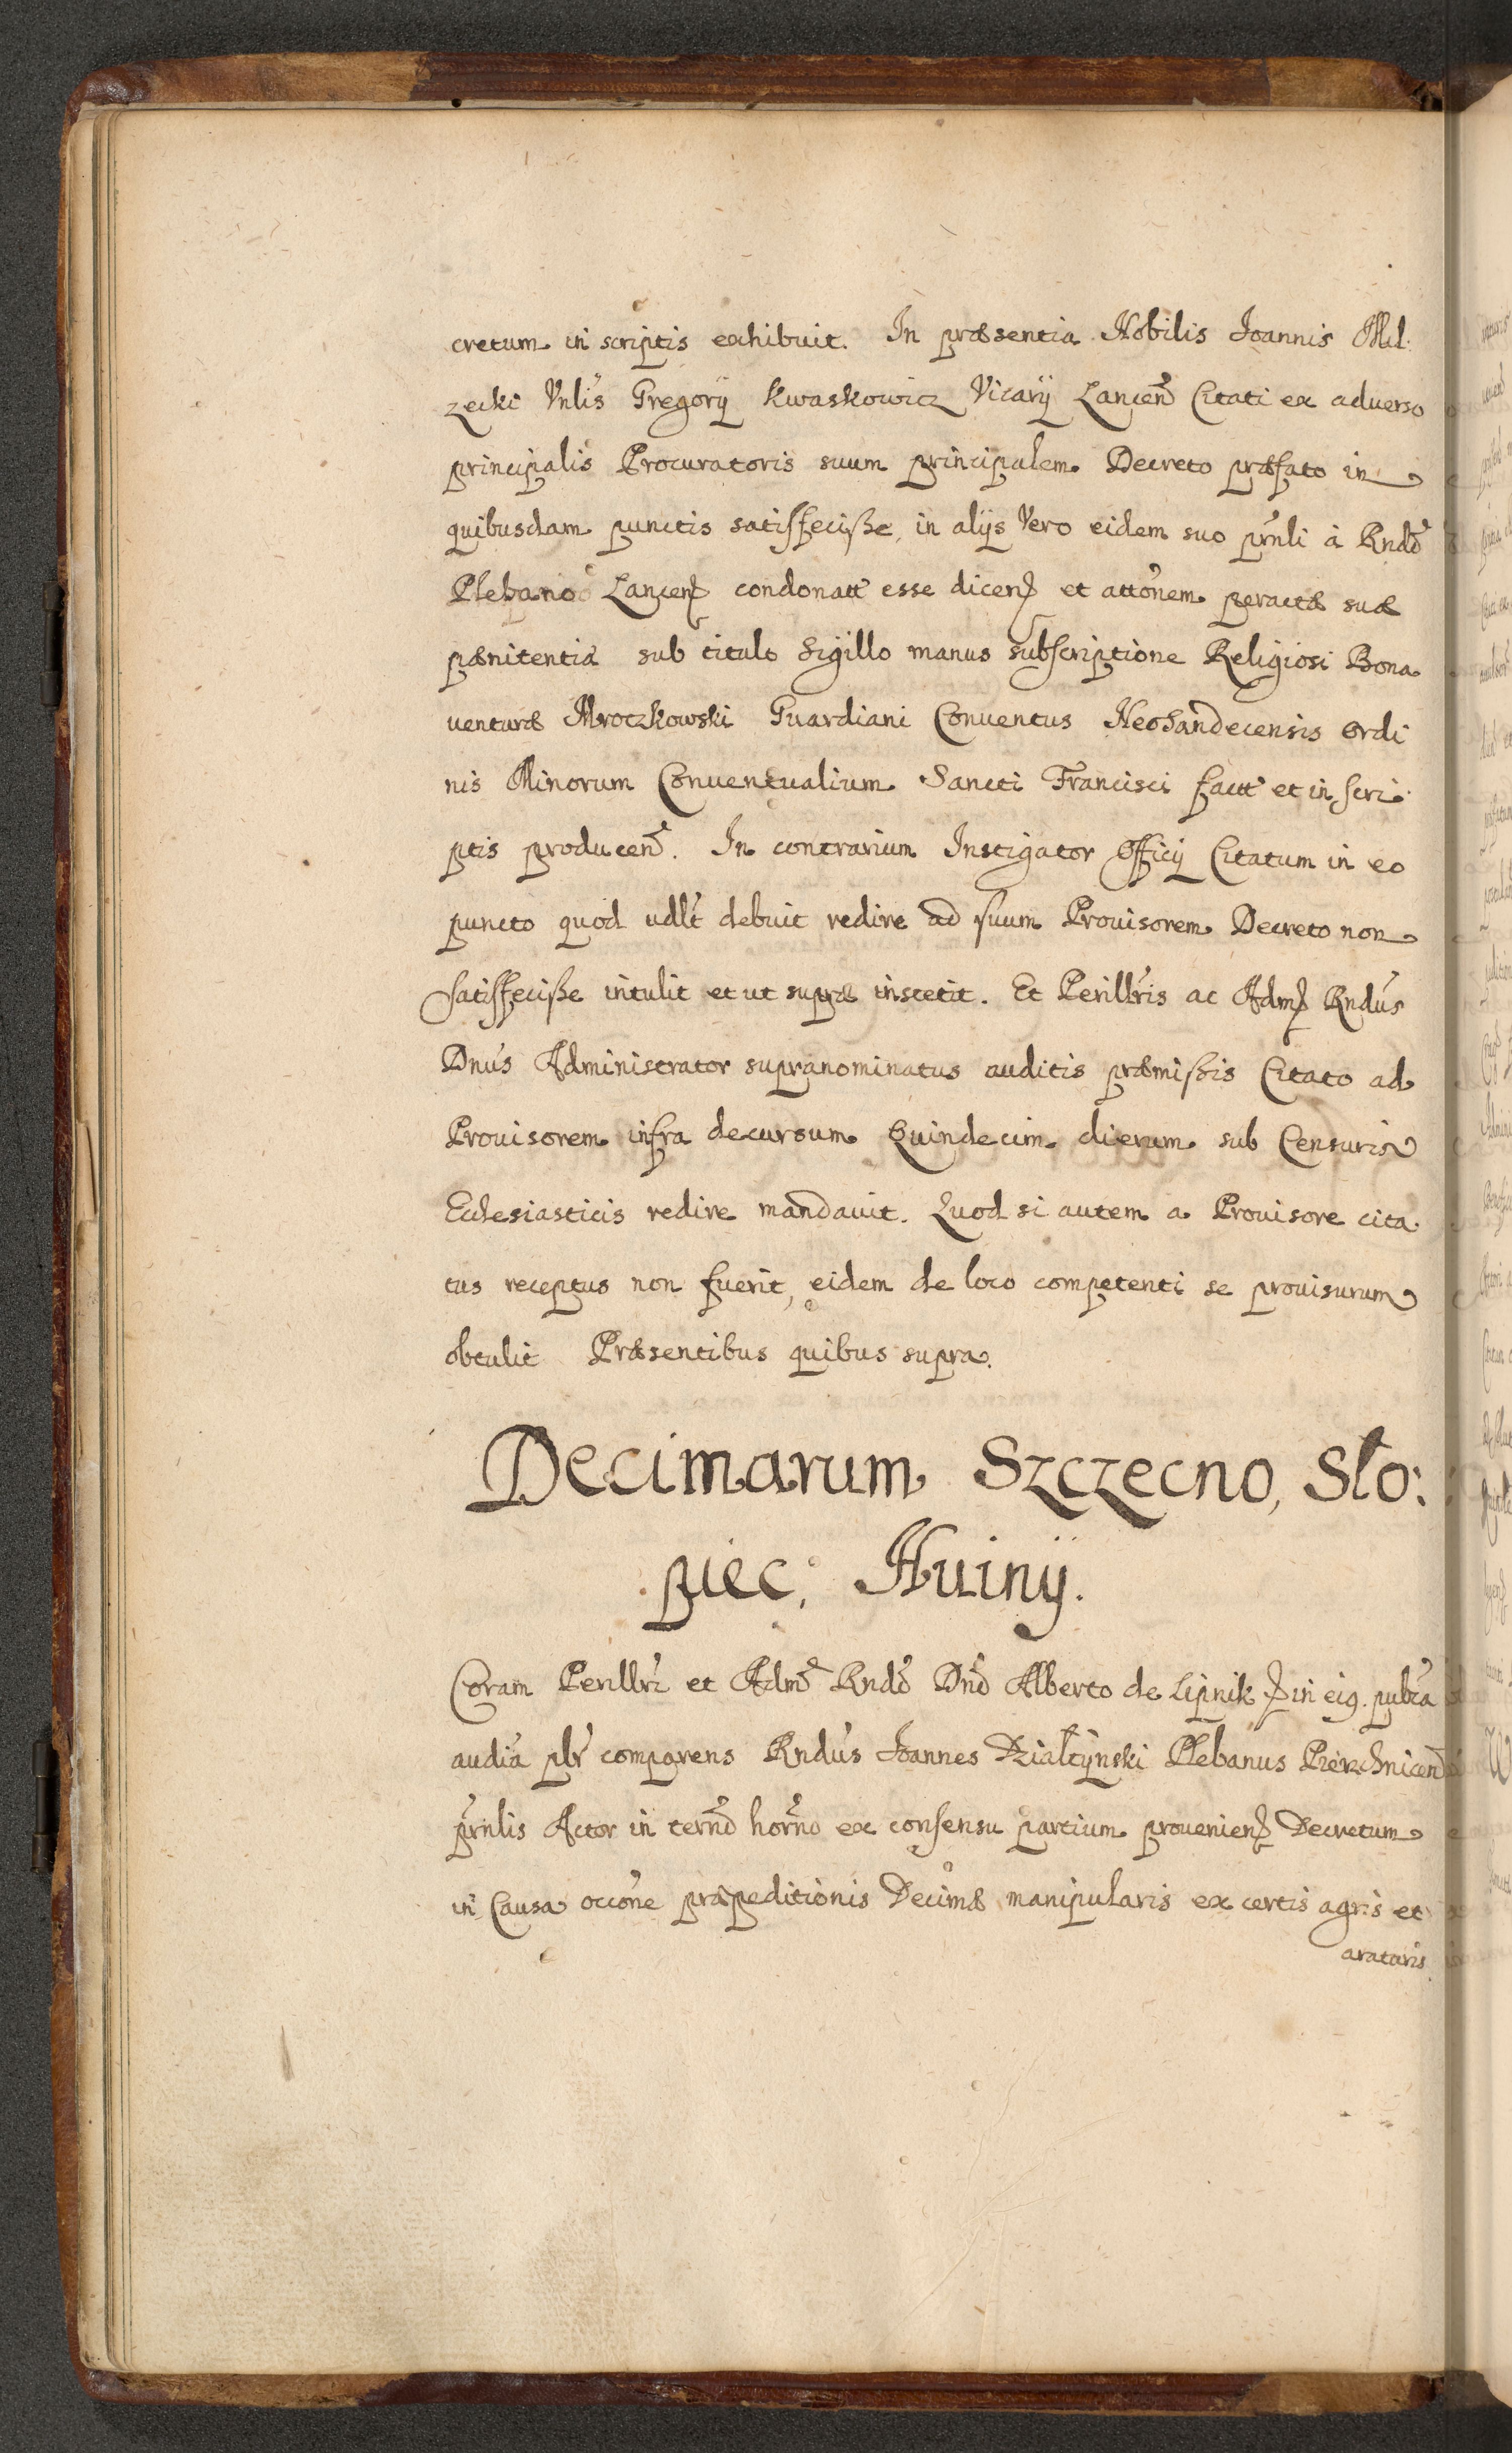 cretum in scriptis exhibuit. In præsentia Nobilis Joannis Mil:
zecki Vnlis Gregorij Kwaskowicz Vicarij Lancen͂ Citati ex aduerso
principalis Procuratoris suum principalem Decreto præfato in
quibusdam punctis satisfeciße, in alijs Vero eidem suo prnli à Rndo
Plebano Lancen condonatt esse dicen et attonem peractæ suæ
pænitentiæ sub titulo Sigillo manus subscriptione Religiosi Bona
uenturæ Mroczkowski Guardiani Conuentus Neosandecensis Ordi
nis Minorum Conuentualium Sancti Francisci factt et in scri:
ptis producen. In contrarium Instigator Officij Citatum in eo
puncto quod udlt debuit redire ad suum Prouisorem Decreto non
satisfeciße intulit et ut supra institit. Et Perillris ac Adm Rndus
Dnus Administrator supranominatus auditis præmißis Citato ad
Prouisorem infra decursum Quindecim dierum sub Censuris
Ecclesiasticis redire mandauit. Quod si autem a Prouisore cita:
tus receptus non fuerit, eidem de loco competenti se prouisurum
obtulit Præsentibus quibus supra.
Decimarum Szczecno, Sło:
piec, Huiny.
Coram Perillri et Adm Rndo Dno Alberto de Lipnik in eig. publca
audia plr comparens Rndus Joannes Działtynski Plebanus Pierzchnicen
prnlis Actor in termo horno ex consensu partium prouenien Decretum
in Causa occone præpeditionis Decimæ manipularis ex certis agris et
araturis